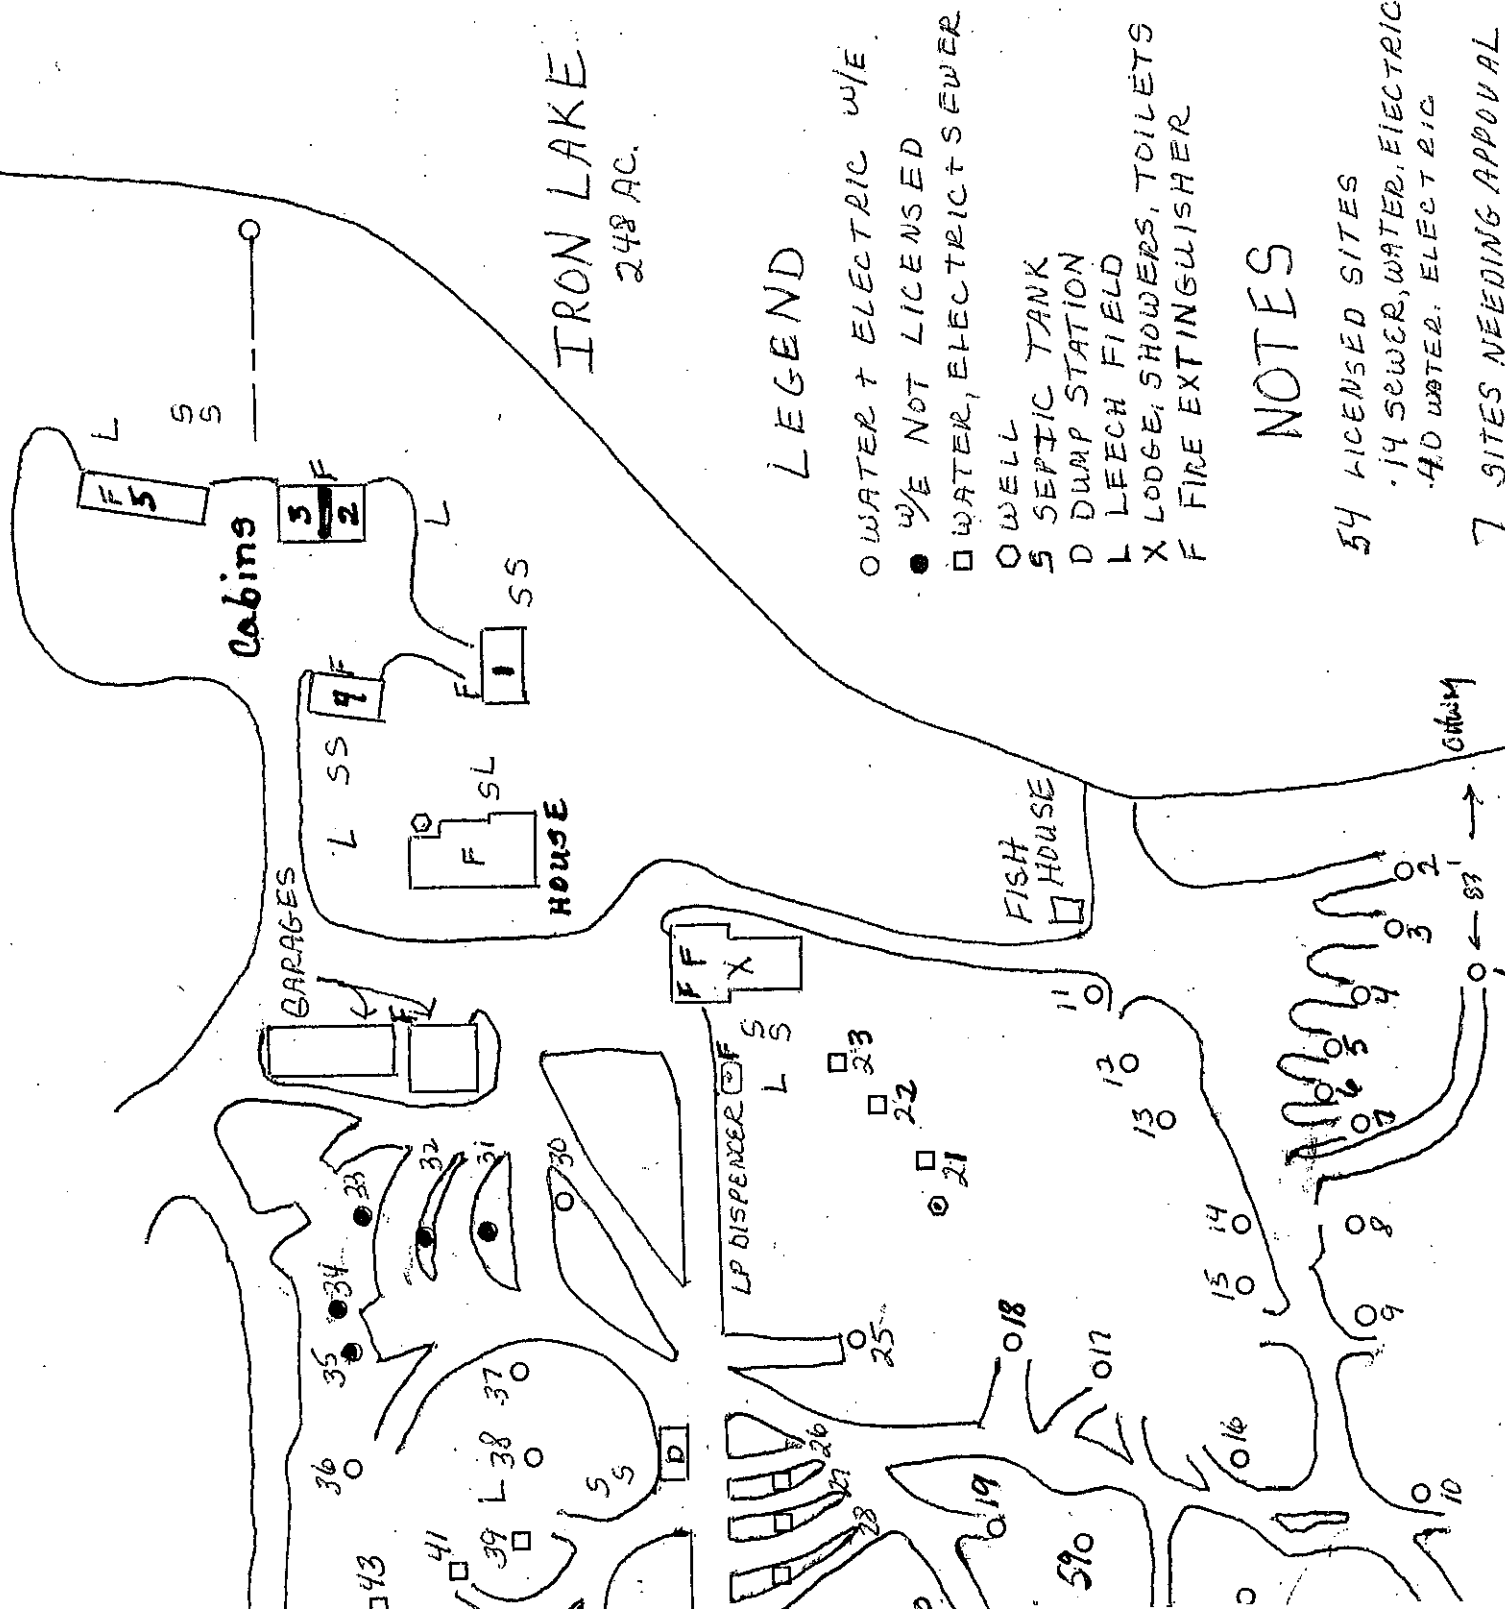 IRON LAKE
248 AC.
LEGEND
O WATER + ELECTRIC W/E
● W/E NOT LICENSED
□ WATER, ELECTRIC + SEWER
WELL
S SEPTIC TANK
D DUMP STATION
L LEECH FIELD
X LODGE, SHOWERS, TOILETS
F FIRE EXTINGUISHER
NOTES
54 LICENSED SITES
·14 SEWER, WATER, ELECTRIC
·40 WATER, ELECTRIC
7 SITES NEEDING APPOVAL
L
S
S
F 5
3
2
F
L
Cabins
4 F
F
1
SS
L SS
SL
F
HOUSE
GARAGES
F
FISH
HOUSE
OHWM
← 83' →
F F
X
S
S
L
LP DISPENCER
F
1
2
3
4
5
6
7
8
9
10
11
12
13
14
15
16
17
18
19
59
21
22
23
25
26
27
28
30
31
32
33
34
35
36
37
38
L
S
S
D
39
41
43